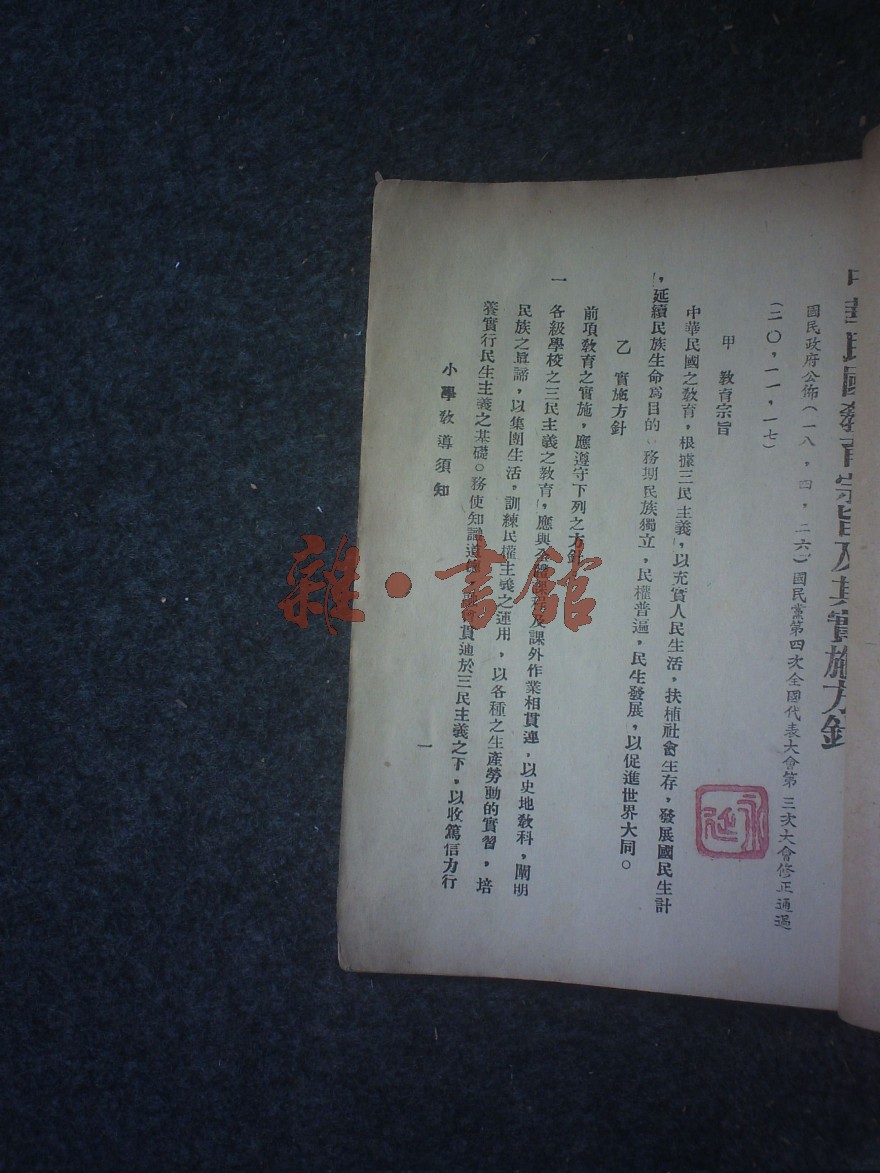 中華民國教育宗旨及其實施方針
國民政府公佈(一八，四，二六，)國民黨第四次全國代表大會第三次大會修正通過
(二〇，一一，一七)
甲　教育宗旨
中華民國之教育，根據三民主義，以充實人民生活，扶植社會生存，發展國民生計
，延續民族生命爲目的，務期民族獨立，民權普遍，民生發展，以促進世界大同。
乙　實施方針
前項敎育之實施，應遵守下列之方針
一　各級學校之三民主義之敎育，應與全體課程及課外作業相貫連，以史地敎科，闡明
民族之眞諦，以集團生活，訓練民權主義之運用，以各種之生產勞動的實習，培
養實行民生主義之基礎。務使知識道德，融會貫通於三民主義之下，以收篤信力行
小學敎導須知
一
雜·書館